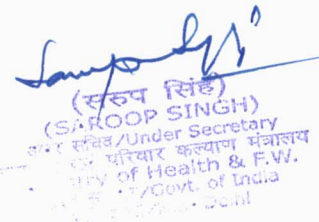 (सरुप सिंह)
(SAROOP SINGH)
सचिव/Under Secretary
परिवार कल्याण मंत्रालय
of Health & F.W.
/Govt. of India